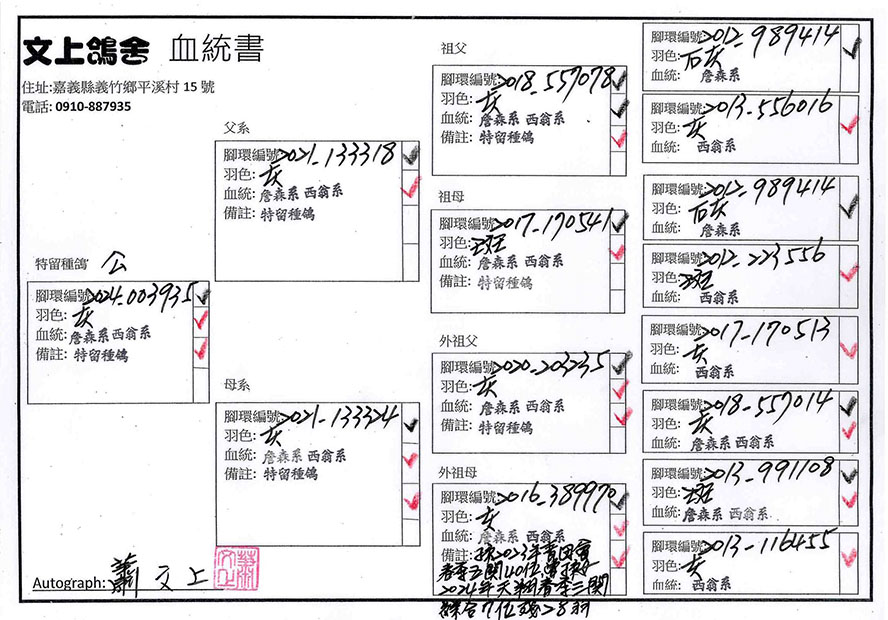 文上鴿舍 血統書
住址:嘉義縣義竹鄉平溪村 15 號
電話: 0910-887935
特留種鴿 公
腳環編號 2024-003935
羽色: 灰
血統: 詹森系 西翁系
備註: 特留種鴿
父系
腳環編號 2021-133318
羽色: 灰
血統: 詹森系 西翁系
備註: 特留種鴿
母系
腳環編號 2021-133324
羽色: 灰
血統: 詹森系 西翁系
備註: 特留種鴿
祖父
腳環編號 2018-557078
羽色: 灰
血統: 詹森系 西翁系
備註: 特留種鴿
祖母
腳環編號 2017-170541
羽色: 斑
血統: 詹森系 西翁系
備註: 特留種鴿
外祖父
腳環編號 2020-203235
羽色: 灰
血統: 詹森系 西翁系
備註: 特留種鴿
外祖母
腳環編號 2016-389970
羽色: 灰
血統: 詹森系 西翁系
備註: 2023年
春季五關40位
2024年 春季三關
綜合7位 28羽
腳環編號 2012-989414
羽色: 石灰
血統: 詹森系
腳環編號 2013-556016
羽色: 灰
血統: 西翁系
腳環編號 2012-989414
羽色: 石灰
血統: 詹森系
腳環編號 2012-223556
羽色: 斑
血統: 西翁系
腳環編號 2017-170513
羽色: 灰
血統: 西翁系
腳環編號 2018-557014
羽色: 灰
血統: 詹森系 西翁系
腳環編號 2013-991108
羽色: 斑
血統: 詹森系 西翁系
腳環編號 2013-116455
羽色: 灰
血統: 西翁系
Autograph: 蕭文上